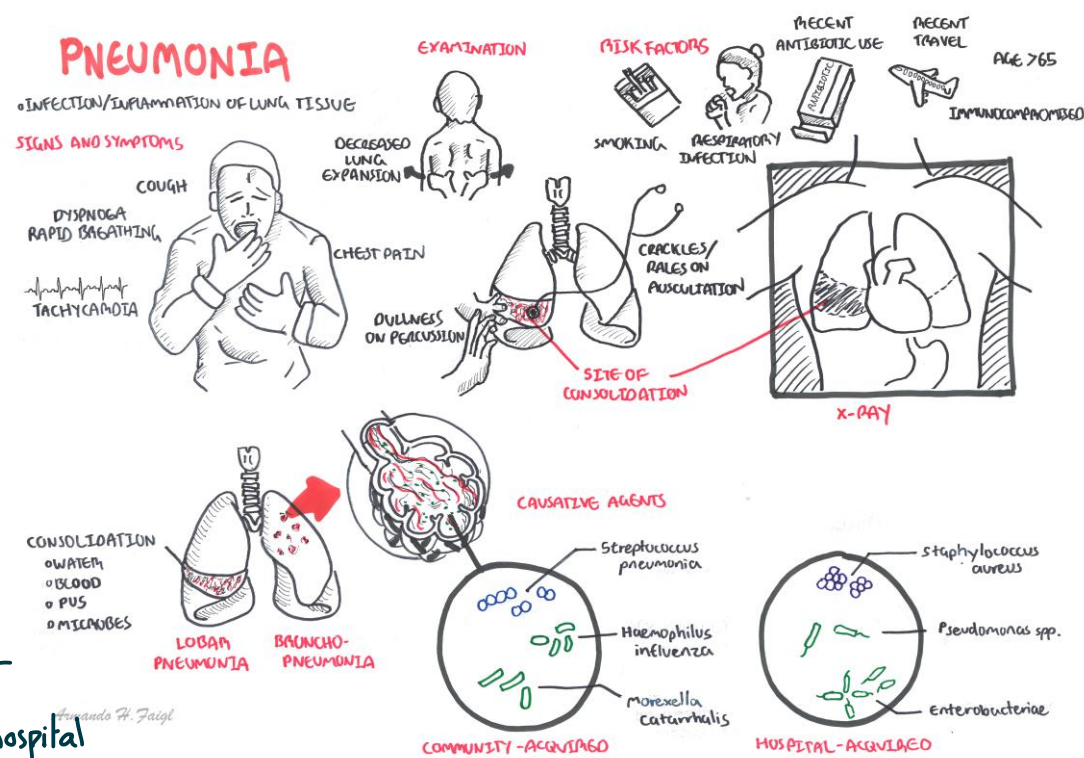 PNEUMONIA
INFECTION/INFLAMMATION OF LUNG TISSUE
SIGNS AND SYMPTOMS
COUGH
DYSPNOEA
RAPID BREATHING
TACHYCARDIA
CHEST PAIN
EXAMINATION
DECREASED
LUNG
EXPANSION
DULLNESS
ON PERCUSSION
CRACKLES/
RALES ON
AUSCULTATION
SITE OF
CONSOLIDATION
RISK FACTORS
SMOKING
RESPIRATORY
INFECTION
RECENT
ANTIBIOTIC USE
ANTIBIOTIC
RECENT
TRAVEL
AGE >65
IMMUNOCOMPROMISED
X-RAY
CONSOLIDATION
WATER
BLOOD
PUS
MICROBES
LOBAR
PNEUMONIA
BRONCHO-
PNEUMONIA
CAUSATIVE AGENTS
Streptococcus
pneumonia
Haemophilus
influenza
Morexella
catarrhalis
COMMUNITY-ACQUIRED
Staphylococcus
aureus
Pseudomonas spp.
Enterobacteriae
HOSPITAL-ACQUIRED
Armando H. Faigl
hospital